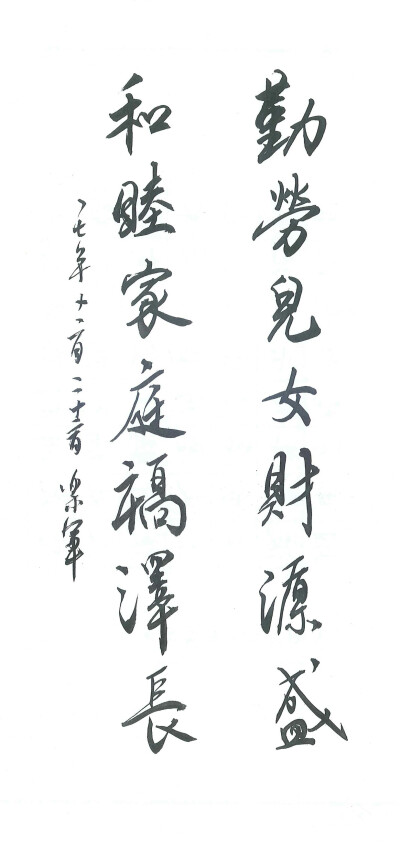 勤勞兒女財源盛
和睦家庭福澤長
一七年十一月二十日 樂軍